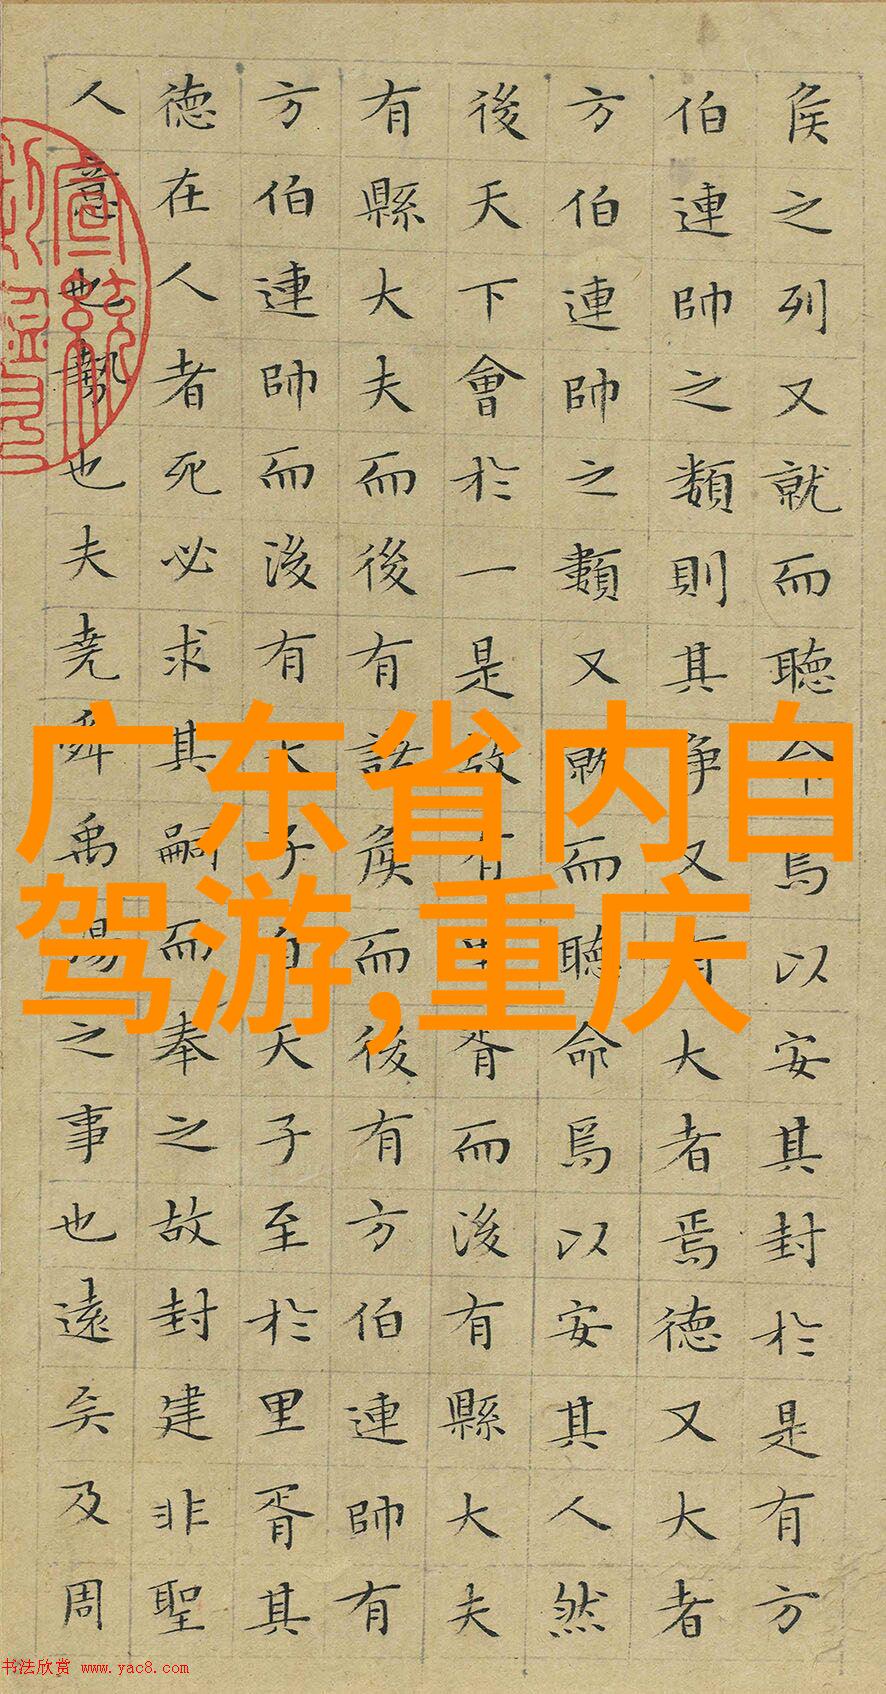 侯之列又就而聽命焉以安其封於是有方
伯連帥之類則其爭又有大者焉德又大者
方伯連帥之類又就而聽命焉以安其人然
後天下會於一是故有里胥而後有縣大夫
有縣大夫而後有諸侯而後有方伯連帥有
方伯連帥而後有天子自天子至於里胥其
德在人者死必求其嗣而奉之故封建非聖
人意也勢也夫堯舜禹湯之事也遠矣及周
广东省内自
驾游,重庆
书法欣赏 www.yac8.com